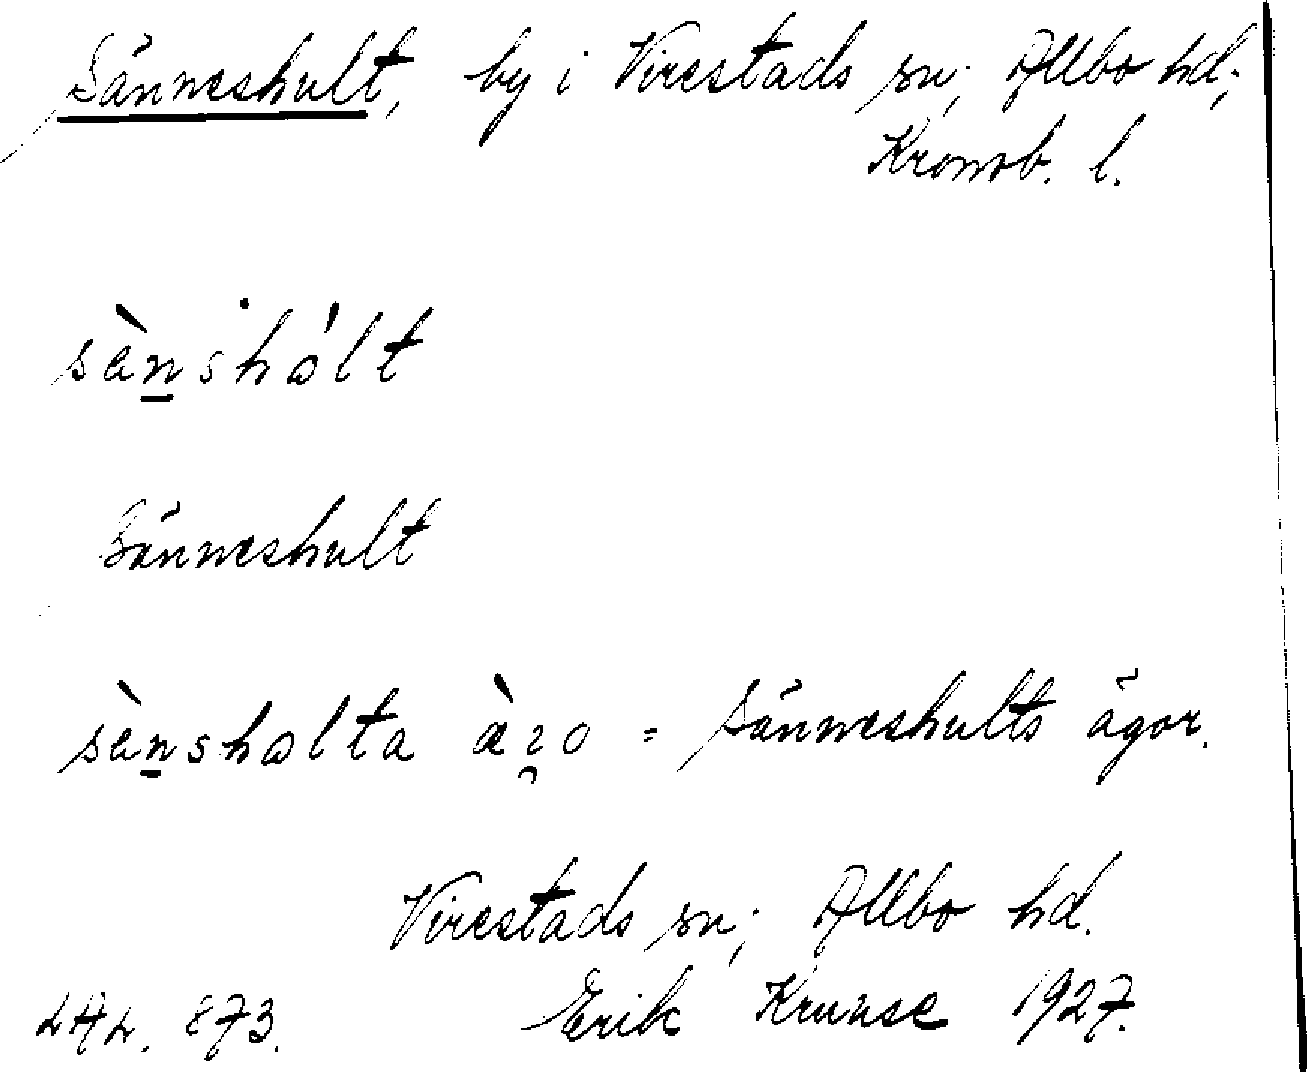 Sänneshult, by i Virestads sn; Allbo hd;
Kronob. l.
sànshólt
Sänneshult
sènsholta = Sänneshults ägor.
Virestads sn; Allbo hd.
Erik Krunse 1927.
LAL. 873.